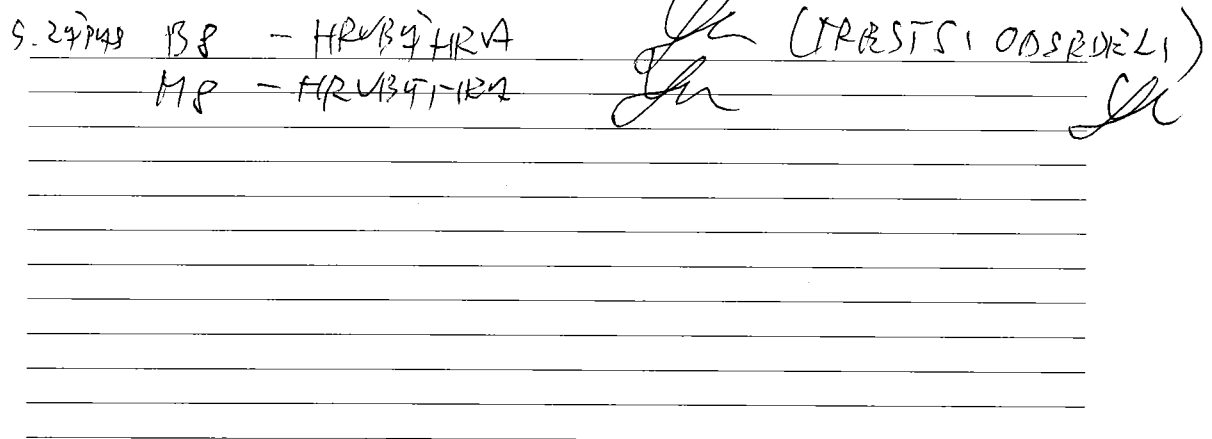 5. ZÁPAS B8 - HRUBÁ HRA (TRESTSI ODSEDELI)
M8 - HRUBÁ HRA